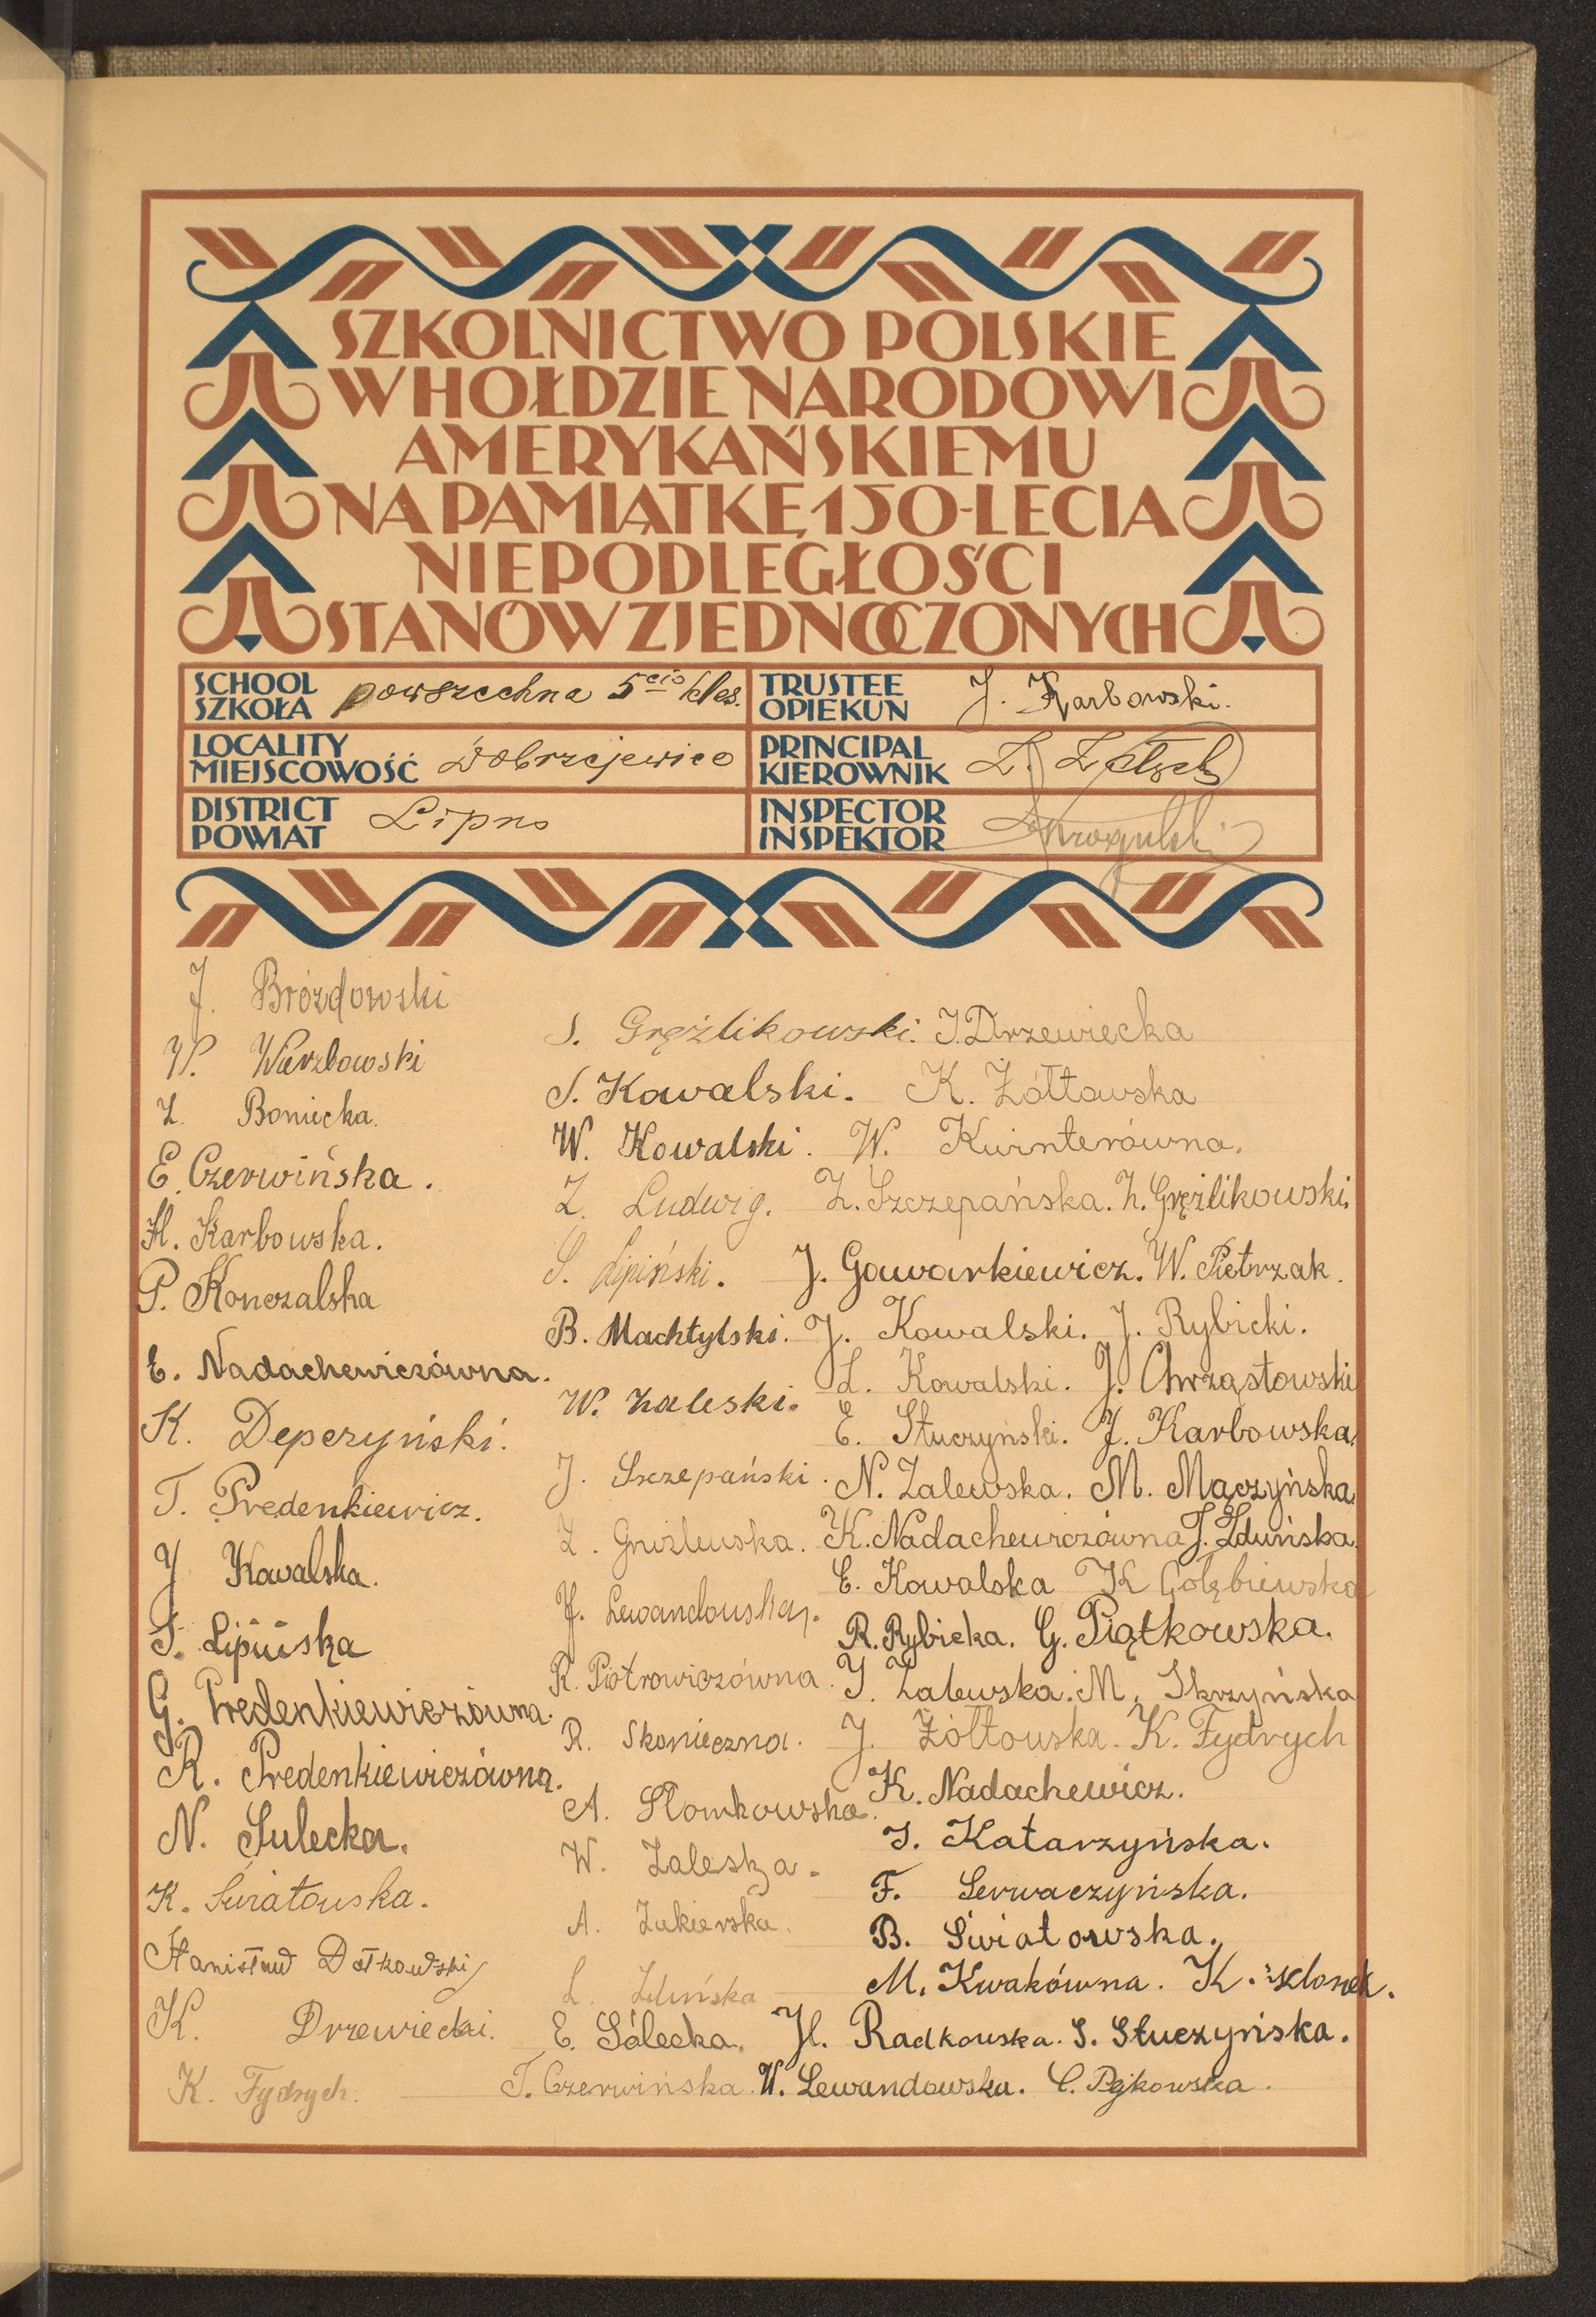 SZKOLNICTWO POLSKIE
W HOŁDZIE NARODOWI
AMERYKAŃSKIEMU
NA PAMIĄTKĘ 150-LECIA
NIEPODLEGŁOŚCI
STANÓW ZJEDNOCZONYCH
SCHOOL
SZKOŁA
powszechna 5cio klas.
TRUSTEE
OPIEKUN
J. Karbowski.
LOCALITY
MIEJSCOWOŚĆ
Dobrzejewice
PRINCIPAL
KIEROWNIK
DISTRICT
POWIAT
Lipno
INSPECTOR
INSPEKTOR
J. Brózdowski
W. Warzbowski
Z. Boniecka.
E. Czerwińska.
H. Karbowska.
P. Konczalska
E. Nadachewiczówna.
K. Depczyński.
T. Predenkiewicz.
J. Kowalska.
S. Lipińska
G. Predenkiewiczówna.
R. Predenkiewiczówna.
N. Sulecka.
K. Światowska.
Stanisław Dołkowski
K. Drzewiecki.
K. Fydrych.
S. Grężlikowski.
S. Kowalski.
W. Kowalski.
Z. Ludwig.
S. Lipiński.
B. Machtylski.
W. Zaleski.
J. Szczepański.
Z. Gniźlewska.
J. Lewandowska.
R. Piotrowiczówna.
R. Skonieczna.
A. Słomkowska.
W. Zaleska.
A. Zakierska.
L. Zduńska
E. Sólecka.
T. Czerwińska.
J. Drzewiecka
K. Żółtowska
W. Kwinterówna.
Z. Szczepańska. Z. Grężlikowski.
J. Gawarkiewicz. W. Pietrzak.
J. Kowalski. J. Rybicki.
L. Kowalski. J. Chrząstowski
E. Stuczyński. J. Karbowska.
N. Zalewska. M. Mączyńska.
K. Nadachewiczówna J. Zduńska.
E. Kowalska K. Gołębiewska
R. Rybicka. G. Piątkowska.
J. Zalewska. M. Skrzyńska
J. Żółtowska. K. Fydrych
K. Nadachewicz.
J. Katarzyńska.
F. Serwaczyńska.
B. Światowska.
M. Kwakówna. K.
H. Radkowska. S. Stuczyńska.
W. Lewandowska. C. Pejkowska.